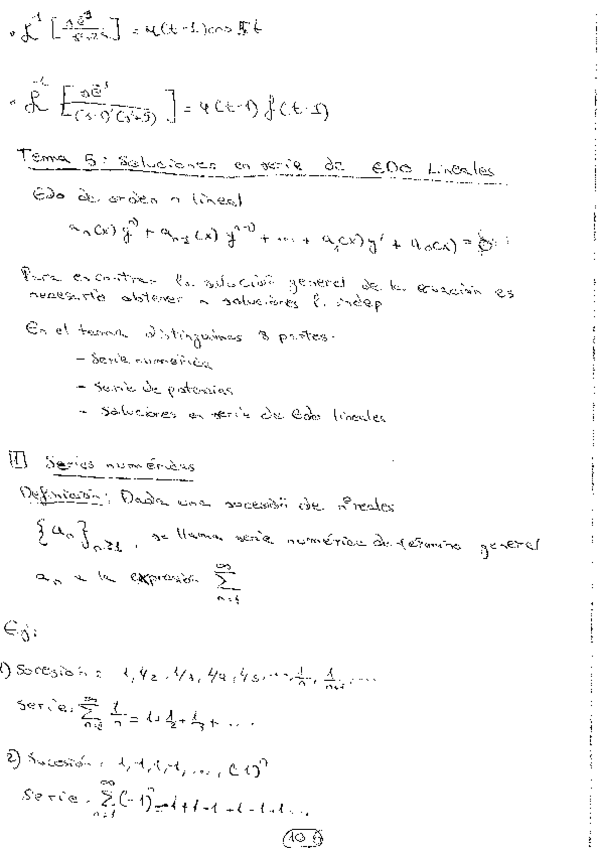 • ℒ⁻¹ [ s e⁻ˢ / ] = u(t-1) cos t
• ℒ⁻¹ [ s e⁻ˢ / (s-1)(s²+5) ] = u(t-1) f(t-1)
Tema 5: Soluciones en serie de EDO Lineales
Edo de orden n lineal
aₙ(x) yⁿ⁾ + aₙ₋₁(x) yⁿ⁻¹⁾ + ... + a₁(x) y' + a₀(x) = 0
Para encontrar la solución general de la ecuación es
necesario obtener n soluciones l. indep
En el tema distinguimos 3 partes.
- Serie numérica
- Serie de potencias
- Soluciones en serie de Edo lineales
1 Series numéricas
Definición: Dada una sucesión de nº reales
{aₙ}ₙ≥₁, se llama serie numérica de término general
aₙ a la expresión ∑ₙ₌₁^∞
Ej:
1) Sucesión: 1, 1/2, 1/3, 1/4, 1/5, ..., 1/n, 1/(n+1), ...
Serie: ∑ₙ₌₁^∞ 1/n = 1 + 1/2 + 1/3 + ...
2) Sucesión: 1, -1, 1, -1, ..., (-1)ⁿ
Serie. ∑ₙ₌₁^∞ (-1)ⁿ = -1+1-1+1-1...